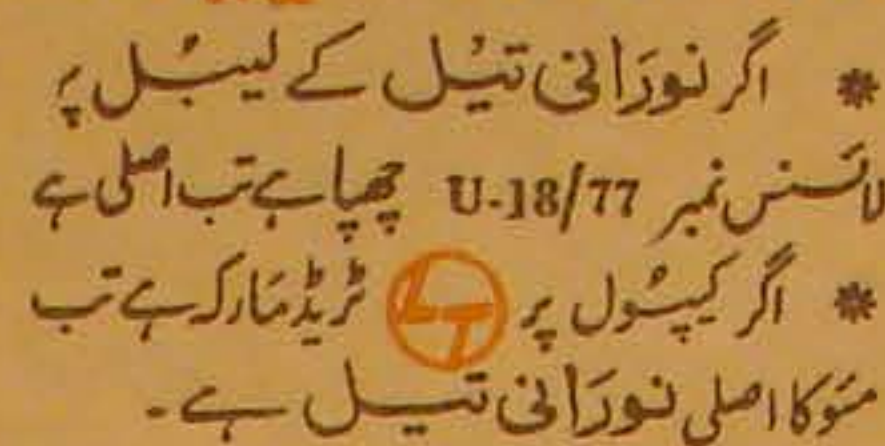 * اگر نورَانی تیْل کے لیبْل پر
لائسنس نمبر U-18/77 چھپا ہے تب اصلی ہے
* اگر کیپسُول پر LT ٹریڈ مَارکہ ہے تب
مئو کا اصلی نورَانی تیل ہے۔